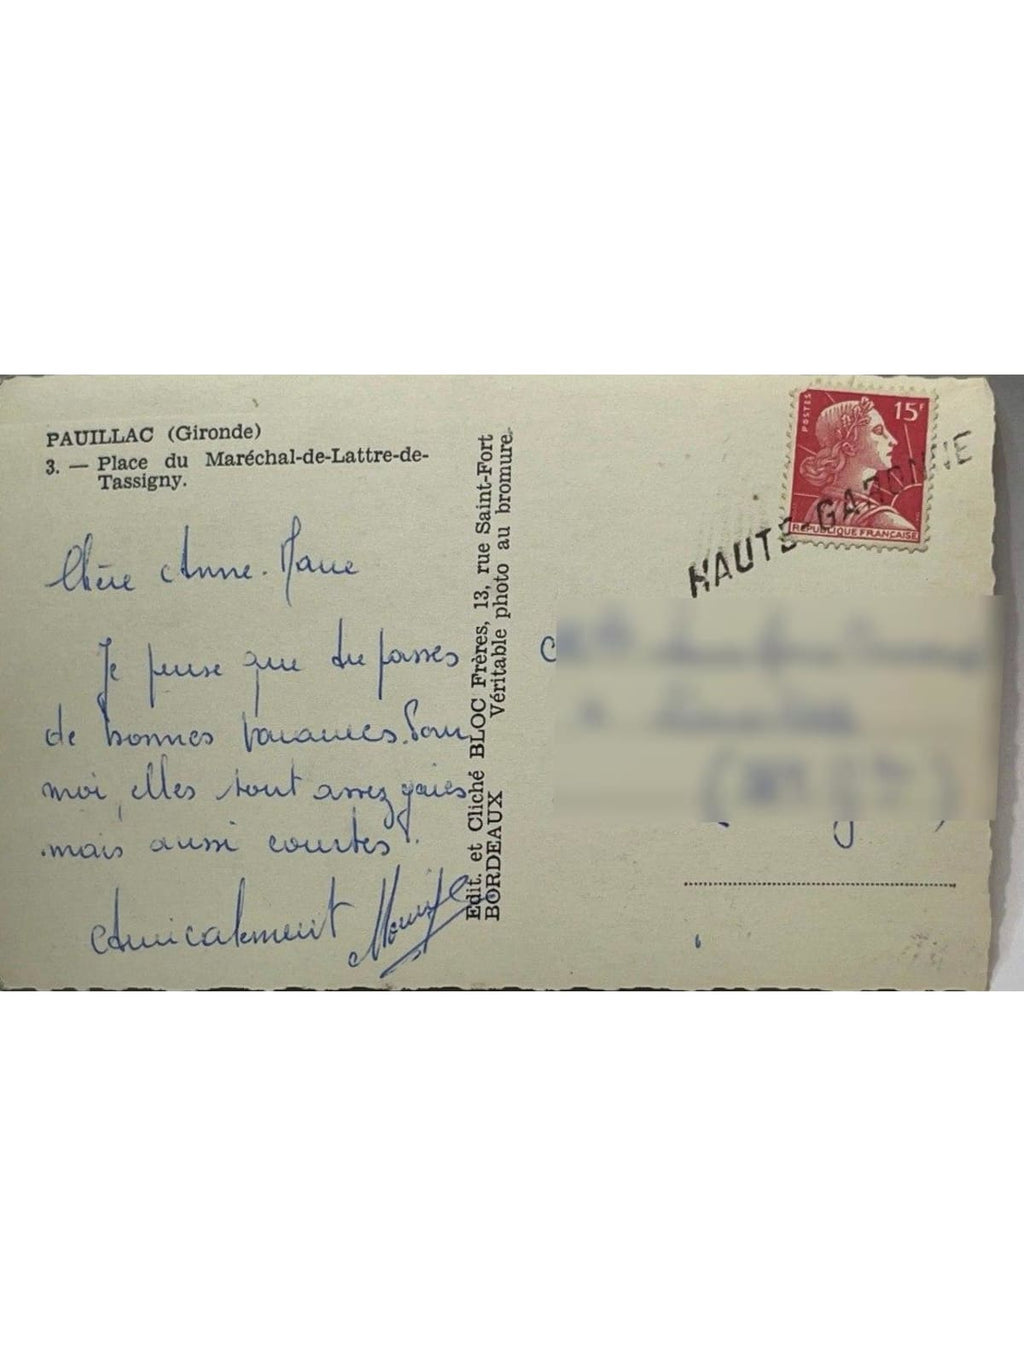 PAUILLAC (Gironde)
3. — Place du Maréchal-de-Lattre-de-
Tassigny.
Chère Anne-Marie
Je pense que tu passes
de bonnes vacances. Pour
moi, elles sont assez gaies
mais aussi courtes.
Amicalement
Edit. et Cliché BLOC Frères, 13, rue Saint-Fort
BORDEAUX Véritable photo au bromure.
POSTES
15F
REPUBLIQUE FRANÇAISE
HAUTE-GARONNE